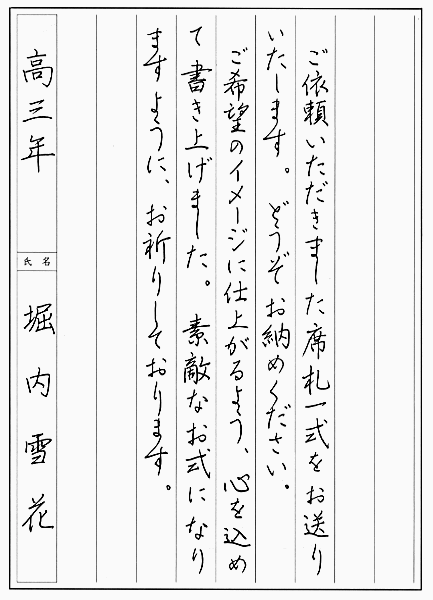 ご依頼いただきました席札一式をお送り
いたします。どうぞお納めください。
ご希望のイメージに仕上がるよう、心を込め
て書き上げました。素敵なお式になり
ますように、お祈りしております。
高三年
氏名
堀内雪花